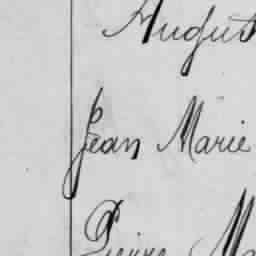 August
Jean Marie
Pierre Ma